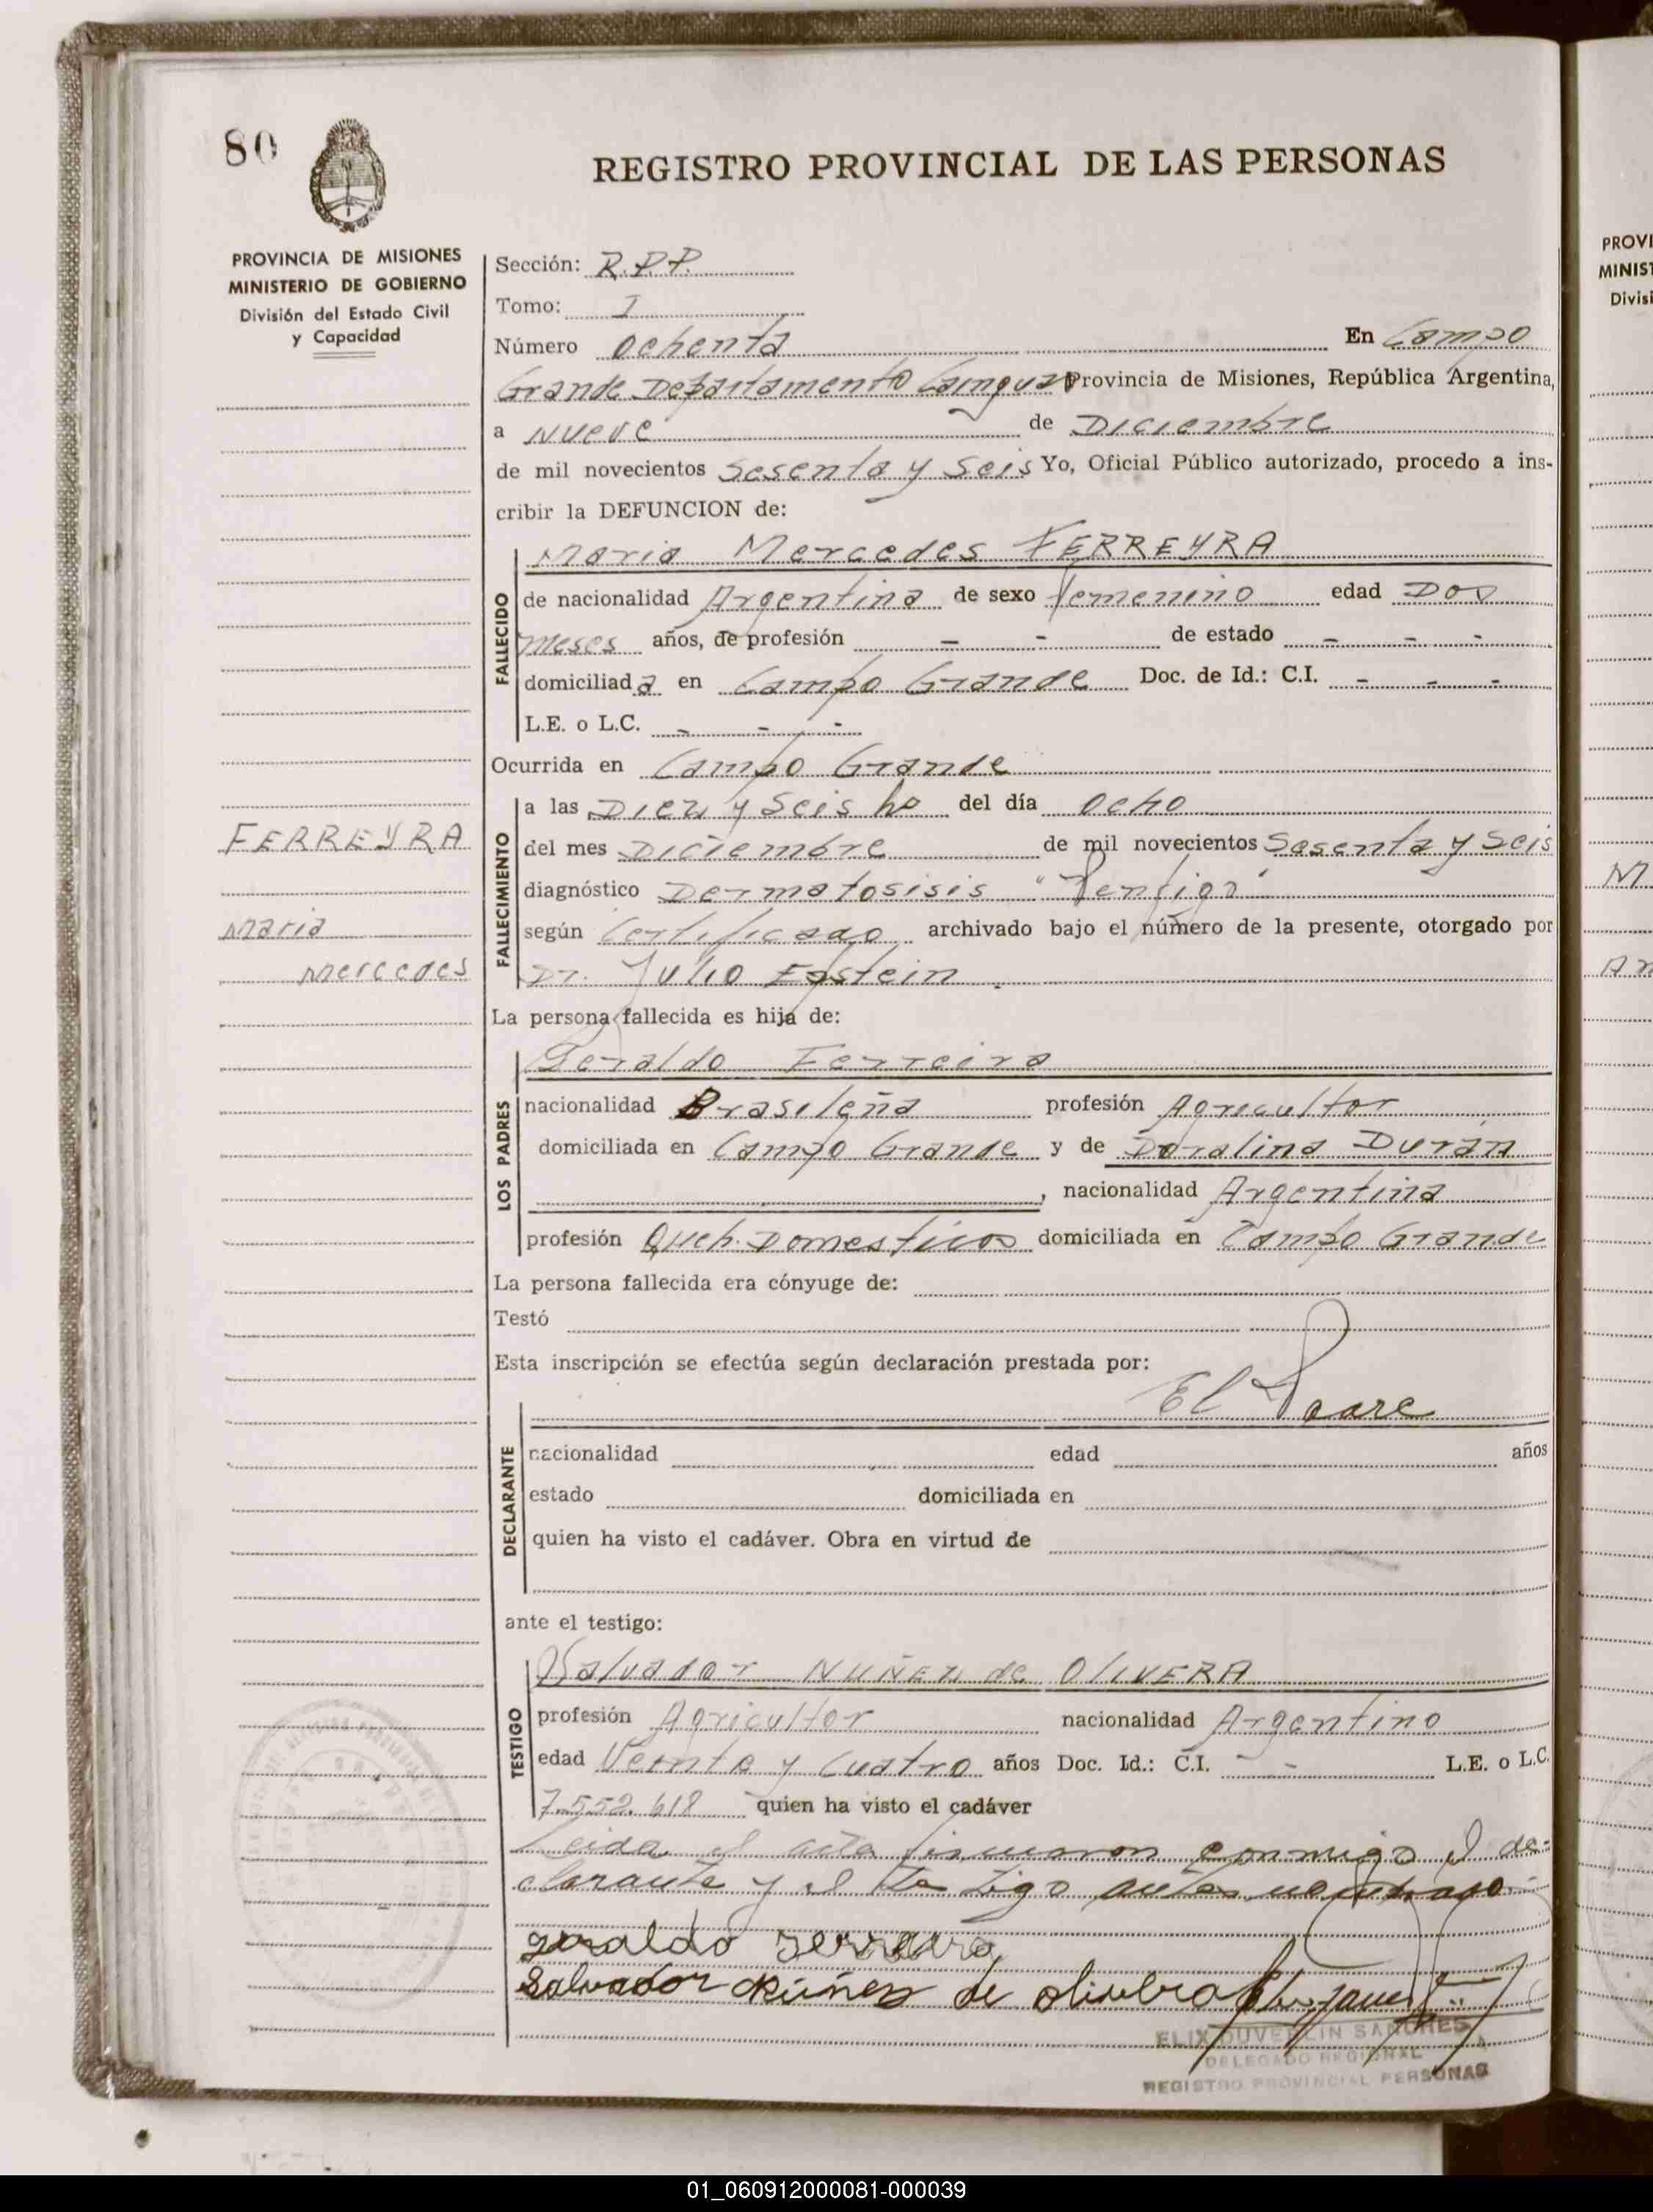 80
REGISTRO PROVINCIAL DE LAS PERSONAS
PROVINCIA DE MISIONES
MINISTERIO DE GOBIERNO
División del Estado Civil
y Capacidad
Sección: R.P.P.
Tomo: I
Número Ochenta En Campo
Grande Departamento Cainguas Provincia de Misiones, República Argentina,
a Nueve de Diciembre
de mil novecientos Sesenta y Seis Yo, Oficial Público autorizado, procedo a ins-
cribir la DEFUNCION de:
FALLECIDO
Maria Mercedes FERREYRA
de nacionalidad Argentina de sexo femenino edad Dos
meses años, de profesión - - de estado - - -
domiciliada en Campo Grande Doc. de Id.: C.I. - - -
L.E. o L.C. - - -
Ocurrida en Campo Grande
FERREYRA
Maria
Mercedes
FALLECIMIENTO
a las Diez y Seis hs del día Ocho
del mes Diciembre de mil novecientos Sesenta y Seis
diagnóstico Dermatosisis "Penfigo"
según Certificado archivado bajo el número de la presente, otorgado por
Dr. Julio Epstein
La persona fallecida es hija de:
LOS PADRES
Geraldo Ferreira
nacionalidad Brasileña profesión Agricultor
domiciliada en Campo Grande y de Doralina Durán
, nacionalidad Argentina
profesión Queh. Domesticos domiciliada en Campo Grande
La persona fallecida era cónyuge de:
Testó
Esta inscripción se efectúa según declaración prestada por:
DECLARANTE
El Padre
nacionalidad edad años
estado domiciliada en
quien ha visto el cadáver. Obra en virtud de
ante el testigo:
TESTIGO
Salvador NUÑEZ de OLIVERA
profesión Agricultor nacionalidad Argentino
edad Veinte y Cuatro años Doc. Id.: C.I. - L.E. o L.C.
7.552.618 quien ha visto el cadáver
Leida el acta firmaron conmigo el de-
clarante y el testigo antes nombrado
geraldo
Salvador Núñez de oliveira
DELEGADO REGIONAL
REGISTRO PROVINCIAL PERSONAS
PROVI
MINIST
Divisi
M
01_060912000081-000039